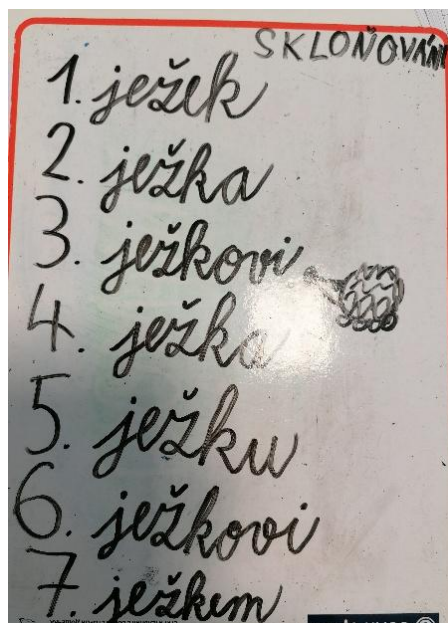 SKLOŇOVÁNÍ
1. ježek
2. ježka
3. ježkovi
4. ježka
5. ježku
6. ježkovi
7. ježkem